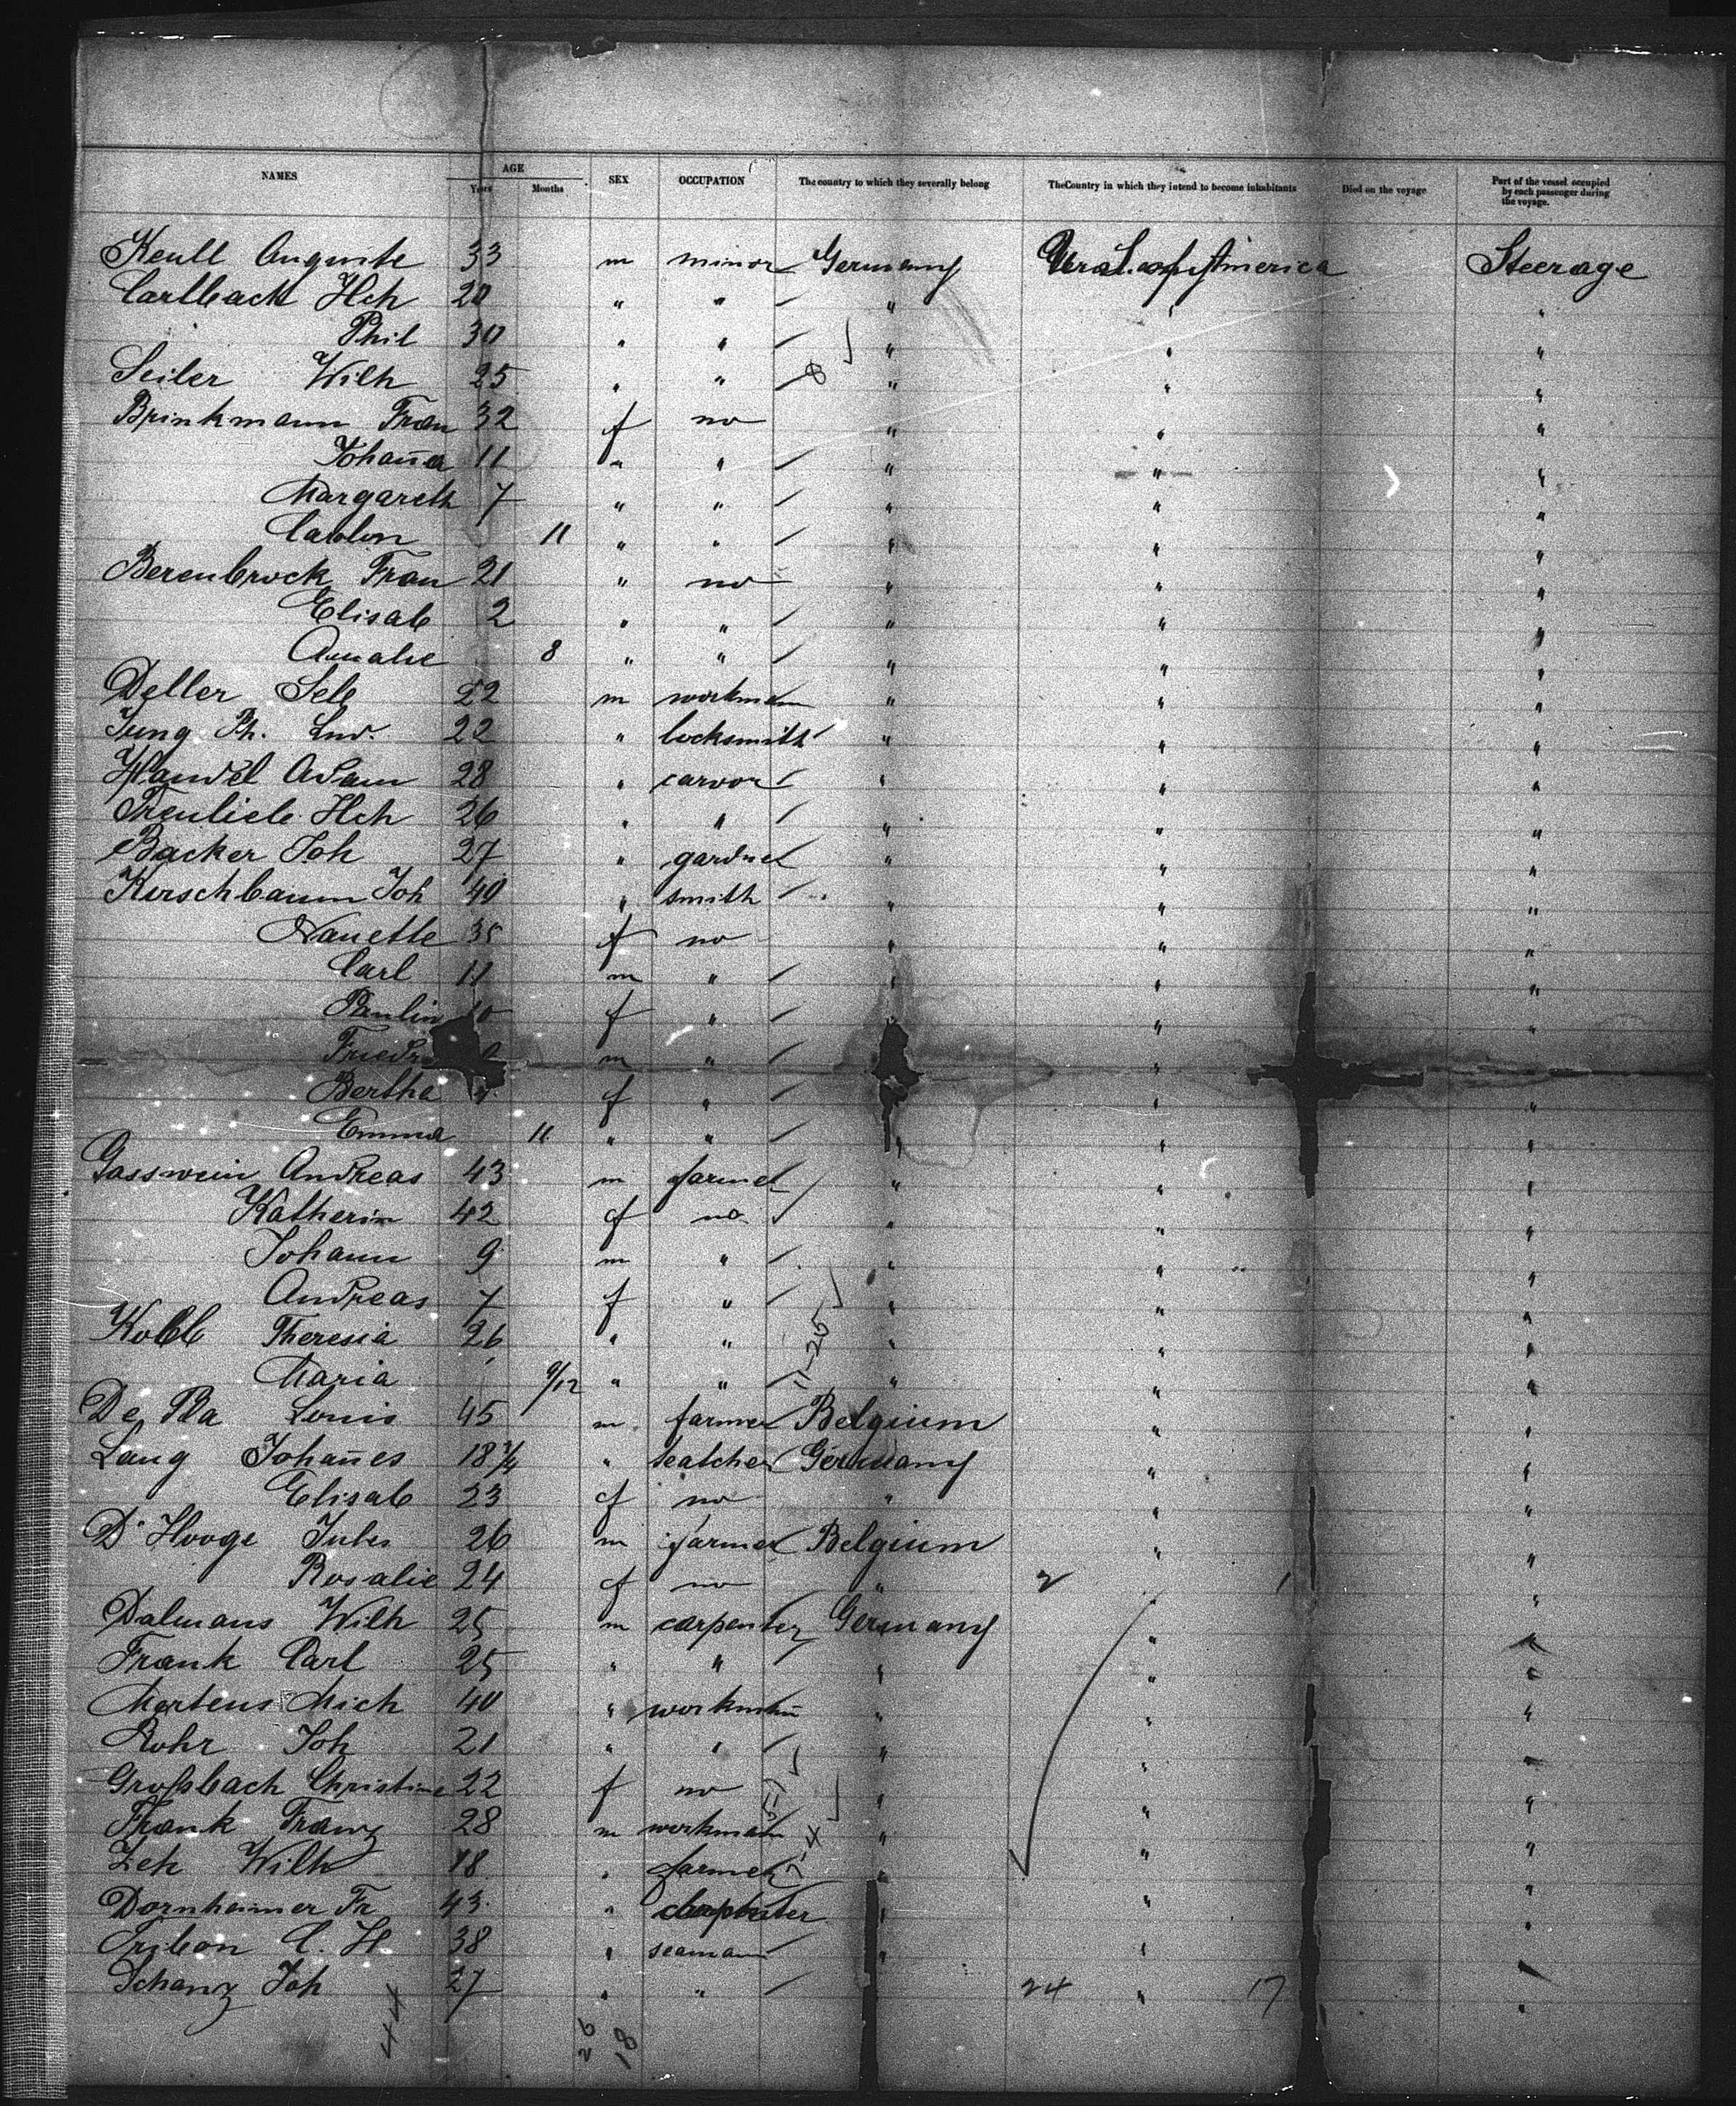 NAMES AGE SEX OCCUPATION The country to which they severally belong The Country in which they intend to become inhabitants Died on the voyage Part of the vessel occupied by each passenger during the voyage.
Years Months
Keull Auguste 33 m minor Germany Ver. S. of America Steerage
Carlbach Hch 20 " " " " "
Phil 30 " " " " "
Seiler Wilh 25 " " " " "
Brinkmann Frau 32 f no " " "
Johaña 11 " " " " "
Margareth 7 " " " " "
11 " " " " "
Berenbrock Frau 21 " no " " "
Elisab 2 " " " " "
Amalie 8 " " " " "
Deller Seb 22 m workman " " "
Jung Ph. Lud. 22 " locksmith " " "
Handel Adam 28 " carvor " " "
Treulieb Hch 26 " " " " "
Backer Joh 27 " gardner " " "
Kirschbaum Joh 40 " smith " " "
Nanette 35 f no " " "
Carl 11 m " " " "
Paulin f " " " "
Friedr m " " " "
Bertha f " " " "
Emma 11 " " " " "
Gasswein Andreas 43 m farmer " " "
Katherin 42 f no " " "
Johann 9 m " " " "
Andreas 7 f " " " "
Kolb Theresia 26 " " " " "
Maria 9/12 " " " " "
De Pla Louis 45 m farmer Belgium " "
Lang Johañes 18 " Germany " "
Elisab 23 f no " " "
D'Hooge Jules 26 m farmer Belgium " "
Rosalie 24 f no " " "
Dalmans Wilh 25 m carpenter Germany " "
Frank Carl 25 " " " " "
Mertens Mich 40 " workman " " "
Rohr Joh 21 " " " " "
Großbach Christine 22 f no " " "
Frank Franz 28 m workman " " "
Zeh Wilh 18 " farmer " " "
Dornheimer Fr 43 " carpenter " " "
C. H. 38 " seaman " " "
Schanz Joh 27 " " " 24 " 17 "
44 26 18